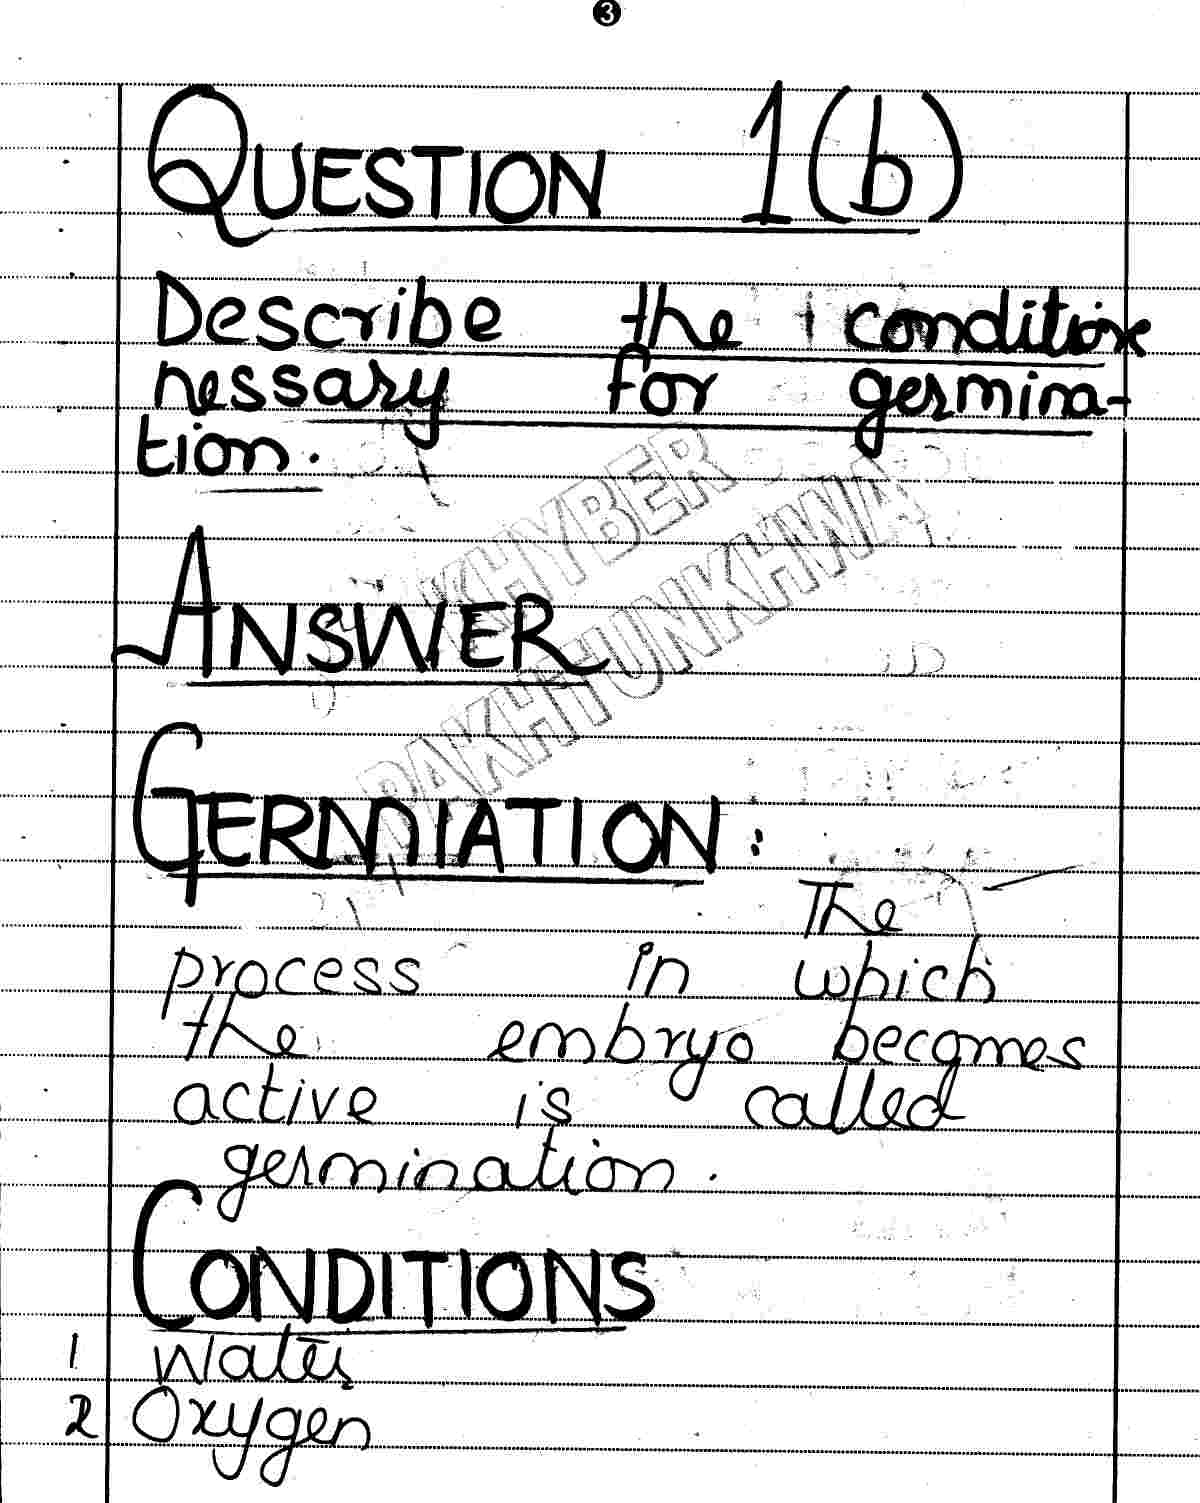 3
QUESTION 1(b)
Describe the condition
nessary for germina-
tion.
KHYBER
PAKHTUNKHWA
ANSWER
GERMNIATION:
The
process in which
the embryo becomes
active is called
germination.
CONDITIONS
1 Water
2 Oxygen